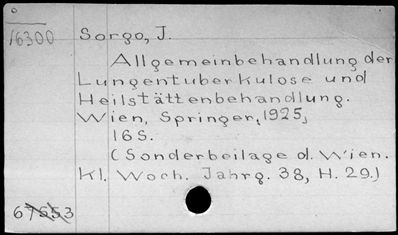 16300 Sorgo, J.
Allgemeinbehandlung der
Lungentuberkulose und
Heilstättenbehandlung.
Wien, Springer, 1925,
16 S.
(Sonderbeilage d. Wien.
Kl. Woch. Jahrg. 38, H. 29.)
67553